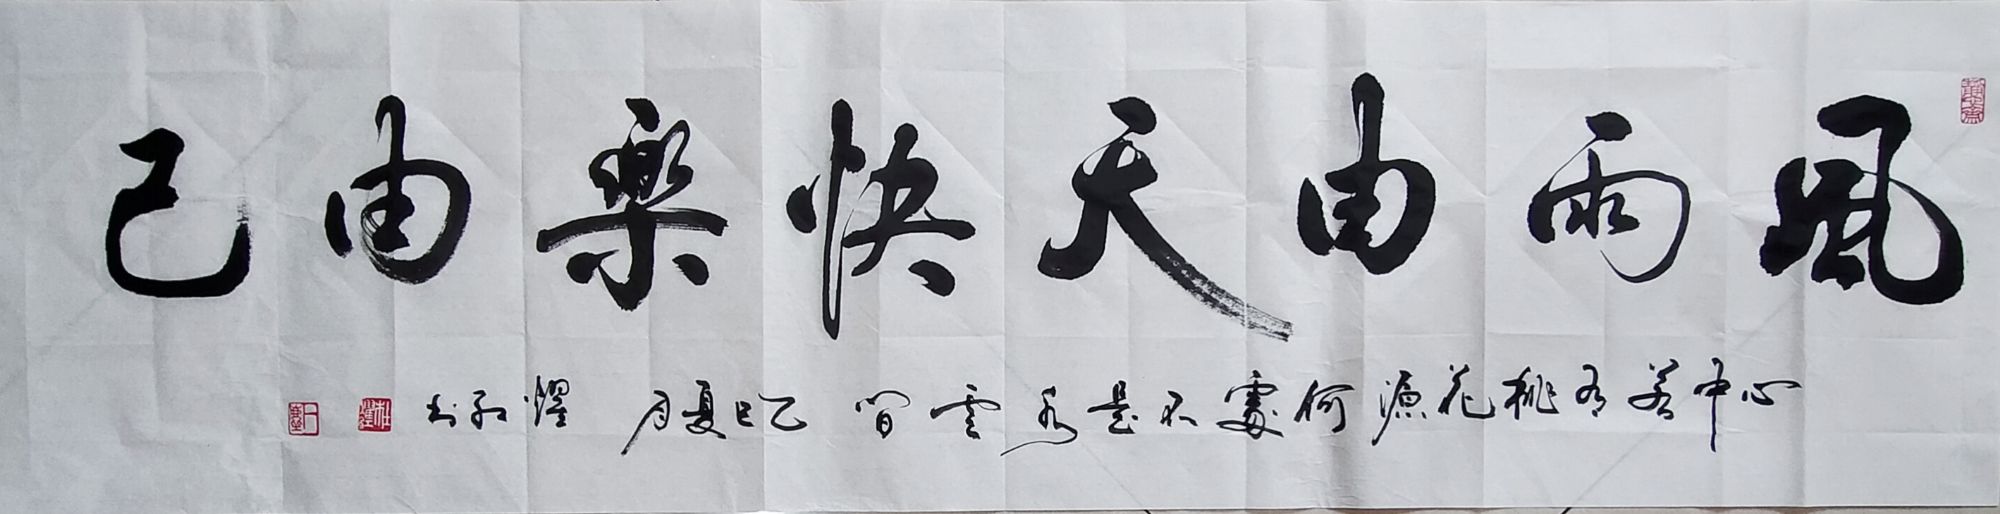 風雨由天快樂由己
心中若有桃花源何處不是水雲間 乙巳夏月 耀